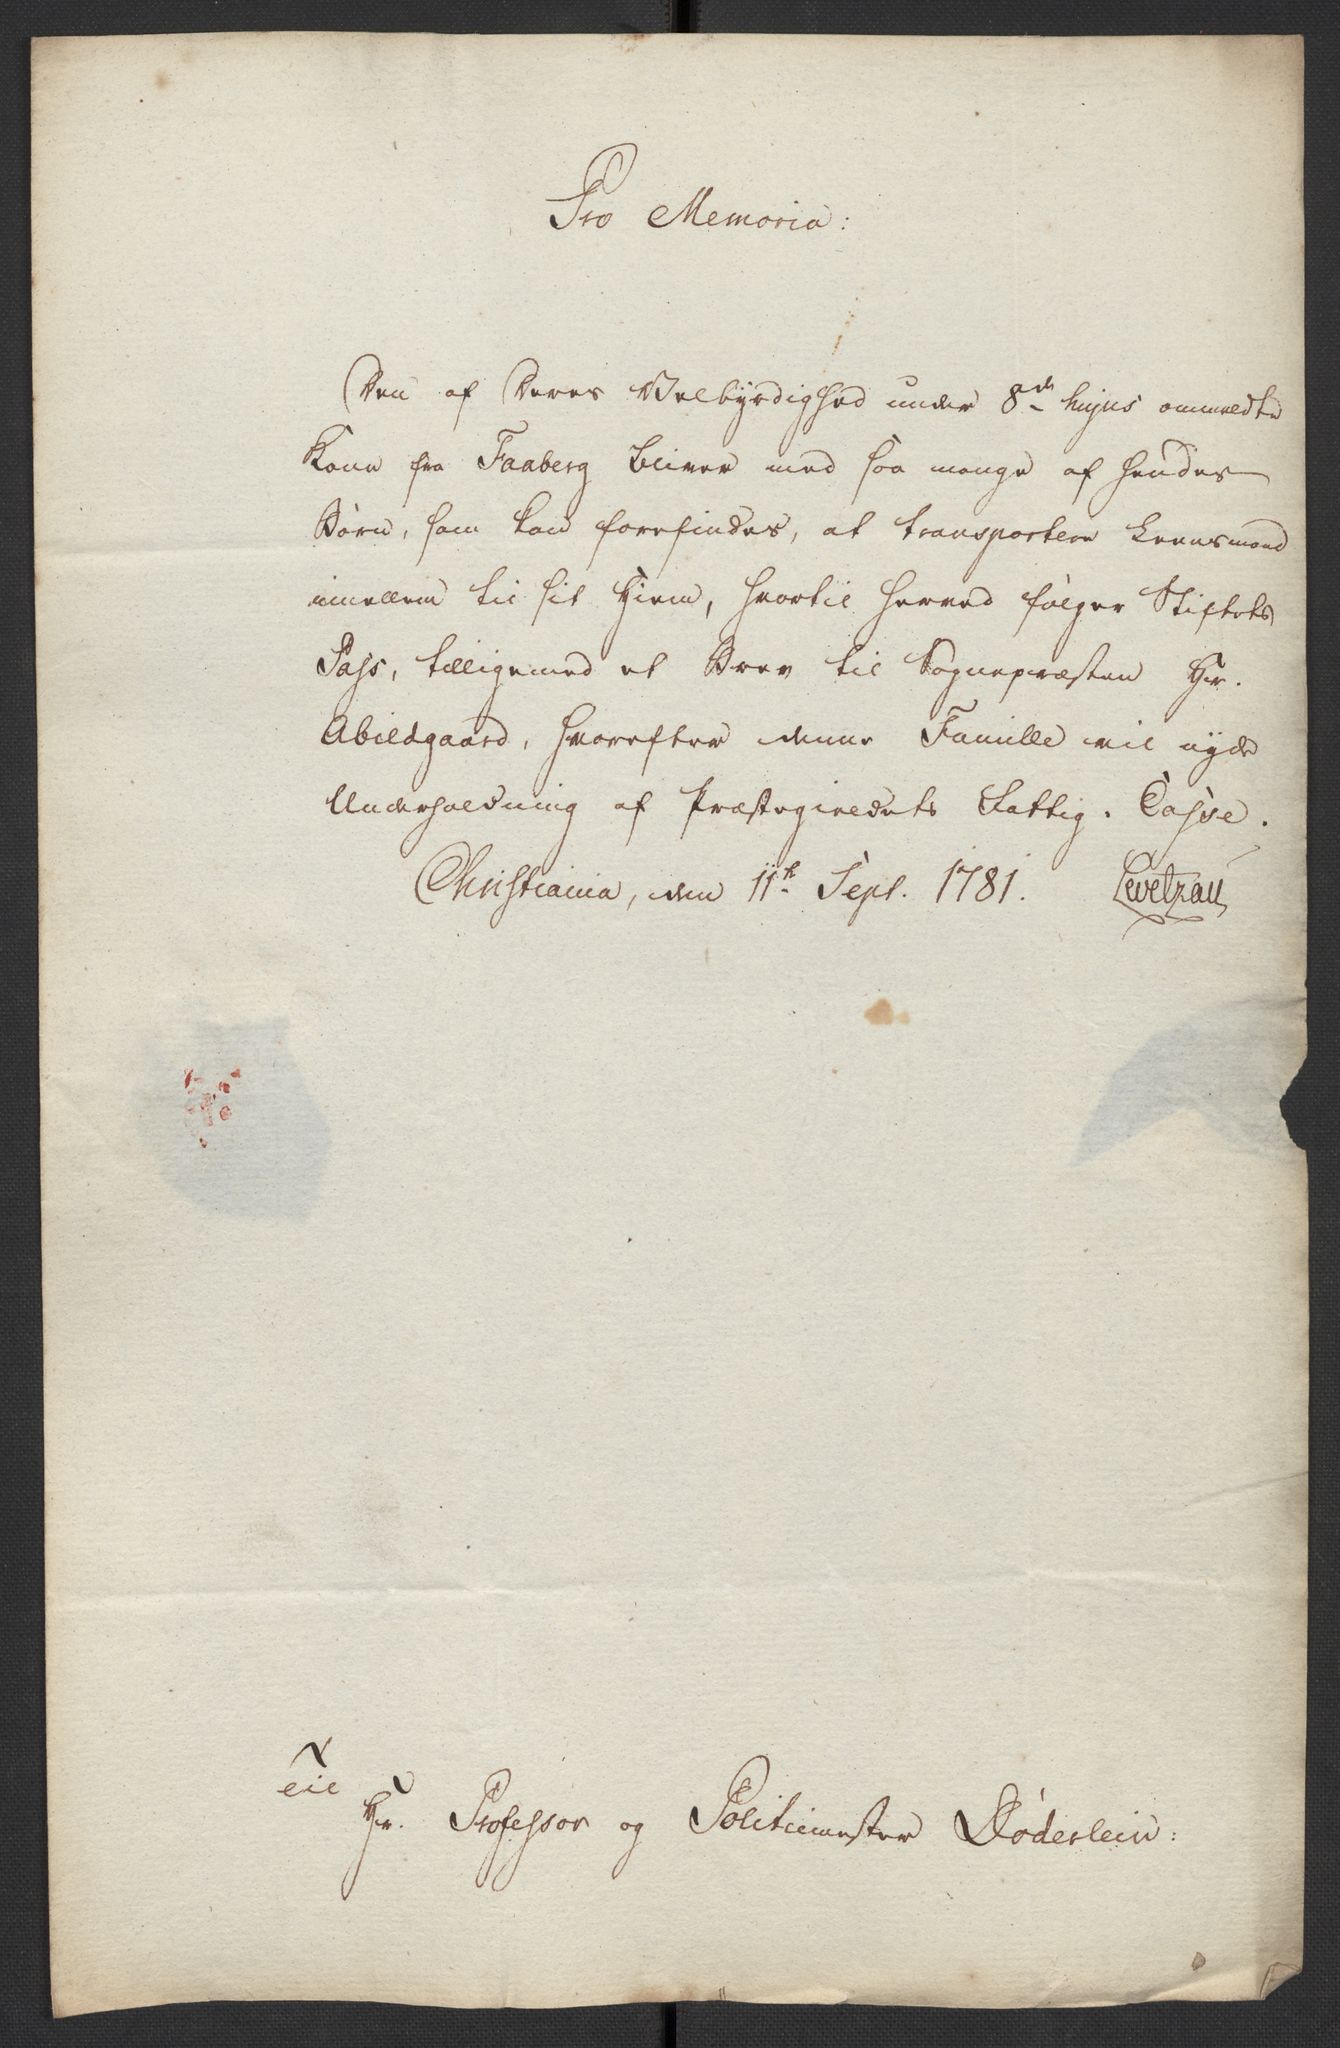 Pro Memoria:
Den af Deres Velbyrdighed under 8de hujus ommeldte
Kone fra Faaberg bliver med saa mange af hendes
Børn, som kan forefindes, at transportere Leensmand
imellem til sit Hiem, hvortil herved følger Stiftets
Pass, tilligemed et Brev til Sognepræsten Hr.
Abildgaard, hvorefter denne Familie vil nyde
Underholdning af Præstegieldets Fattig-Casse.
Christiania, den 11te Sept. 1781. Levetzau
Til
Hr. Professor og Politiemester Døderlein: